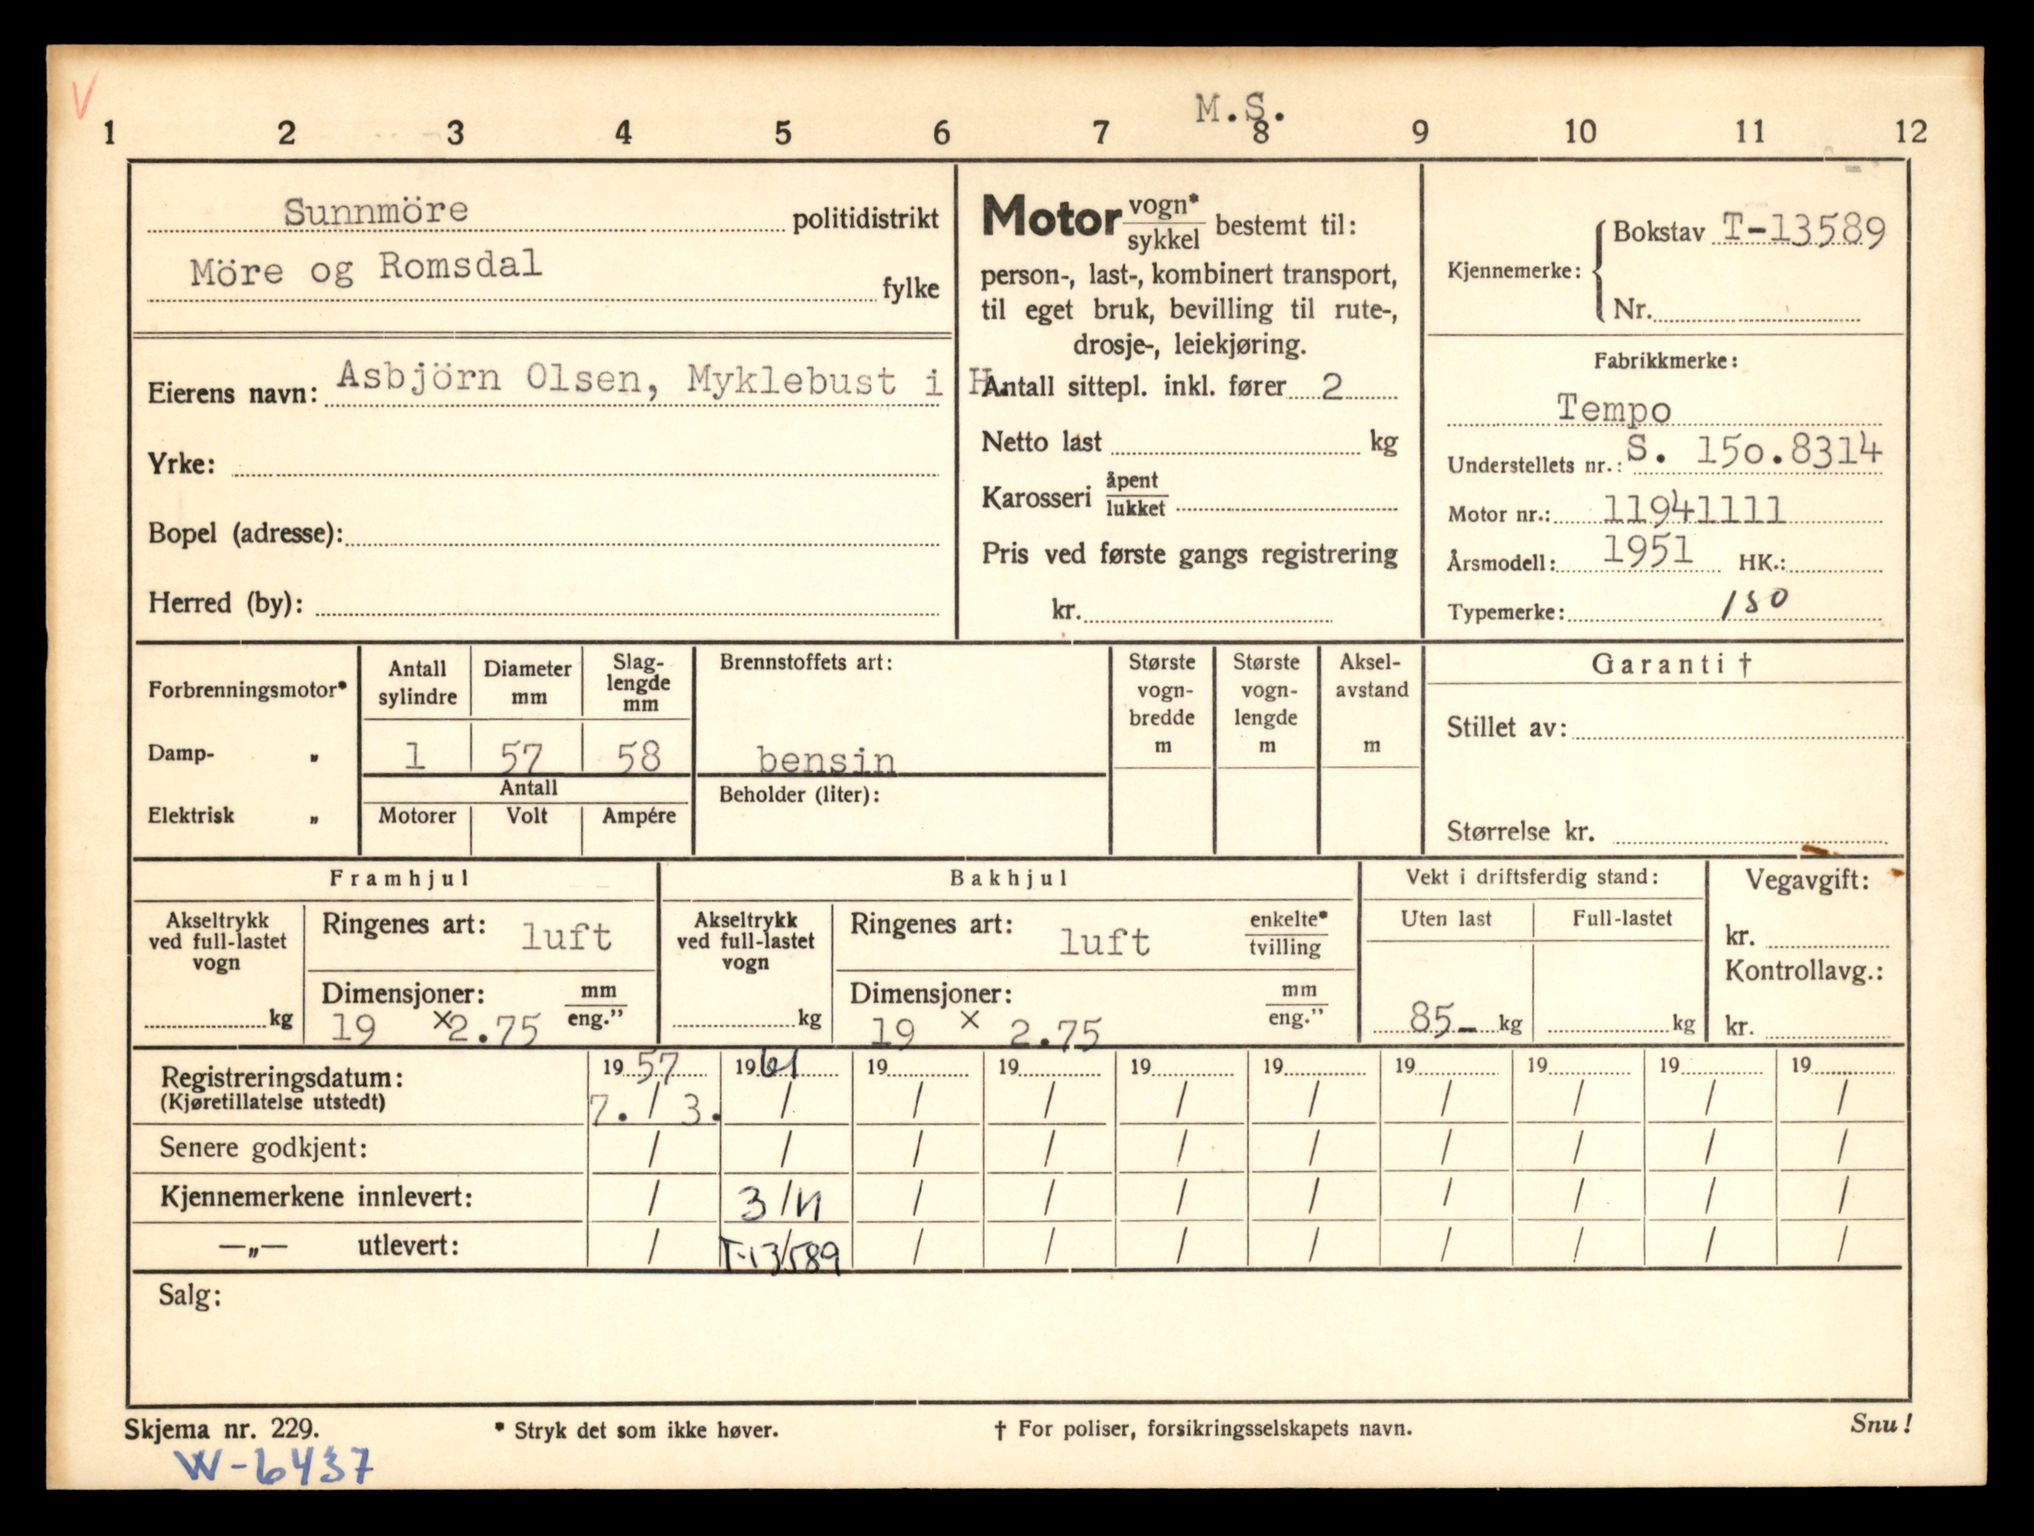 V
M.S.
1 2 3 4 5 6 7 8 9 10 11 12
Sunnmöre politidistrikt
Möre og Romsdal fylke
Eierens navn: Asbjörn Olsen, Myklebust i H.
Yrke:
Bopel (adresse):
Herred (by):
Motor vogn*/sykkel bestemt til:
person-, last-, kombinert transport,
til eget bruk, bevilling til rute-,
drosje-, leiekjøring.
Antall sittepl. inkl. fører 2
Netto last kg
Karosseri åpent/lukket
Pris ved første gangs registrering
kr.
Kjennemerke: { Bokstav T-13589
Nr.
Fabrikkmerke:
Tempo
Understellets nr.: S. 150.8314
Motor nr.: 11941111
Årsmodell: 1951 HK.:
Typemerke: 150
Forbrenningsmotor*
Damp- „
Elektrisk „
Antall sylindre
Diameter mm
Slag-lengde mm
1 57 58
Antall
Motorer Volt Ampére
Brennstoffets art:
bensin
Beholder (liter):
Største vogn-bredde m
Største vogn-lengde m
Aksel-avstand m
Garanti †
Stillet av:
Størrelse kr.
Framhjul
Akseltrykk ved full-lastet vogn
kg
Ringenes art: luft
Dimensjoner: mm/eng.”
19 × 2.75
Bakhjul
Akseltrykk ved full-lastet vogn
kg
Ringenes art: luft enkelte*/tvilling
Dimensjoner: mm/eng.”
19 × 2.75
Vekt i driftsferdig stand:
Uten last Full-lastet
85- kg kg
Vegavgift:
kr.
Kontrollavg.:
kr.
1957 1961 19 19 19 19 19 19 19 19
Registreringsdatum: 7. / 3. / / / / / / / / /
(Kjøretillatelse utstedt)
Senere godkjent: / / / / / / / / / /
Kjennemerkene innlevert: / 3/11 / / / / / / / /
—„— utlevert: / T-13589 / / / / / / / /
Salg:
Skjema nr. 229. * Stryk det som ikke høver. † For poliser, forsikringsselskapets navn. Snu!
W-6437